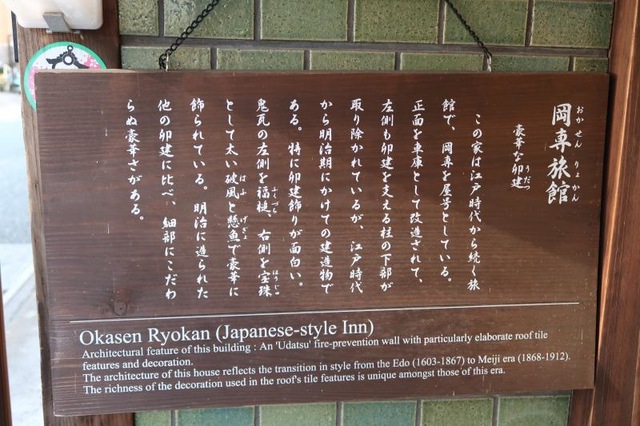 おかせんりょかん
岡専旅館
うだつ
豪華な卯建
この家は江戸時代から続く旅
館で、岡専を屋号としている。
正面を車庫として改造されて、
左側も卯建を支える柱の下部が
取り除かれているが、江戸時代
から明治期にかけての建造物で
ある。特に卯建飾りが面白い。
ふくづち ほうじゅ
鬼瓦の左側を福槌、右側を宝珠
はふ げぎょ
として太い破風と懸魚で豪華に
飾られている。明治に造られた
他の卯建に比べ、細部にこだわ
らぬ豪華さがある。
Okasen Ryokan (Japanese-style Inn)
Architectural feature of this building : An 'Udatsu' fire-prevention wall with particularly elaborate roof tile
features and decoration.
The architecture of this house reflects the transition in style from the Edo (1603-1867) to Meiji era (1868-1912).
The richness of the decoration used in the roof's tile features is unique amongst those of this era.